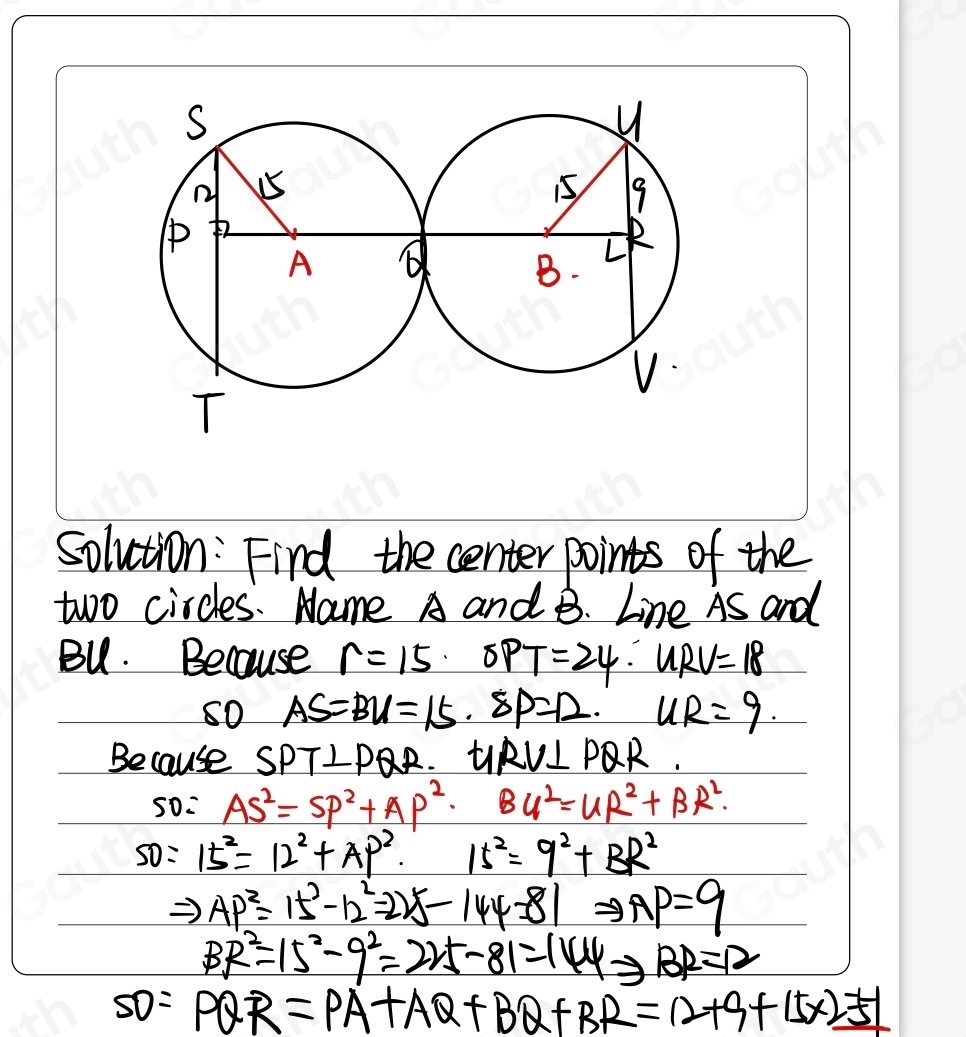 S
U
12
15
15
9
P
R
A
Q
B.
T
V.
Solution: Find the center points of the
two circles. Name A and B. Line AS and
BU. Because r=15. SPT=24. URV=18
so AS=BU=15. SP=12. UR=9.
Because SPT⊥PQR. URV⊥PQR.
so: AS²=SP²+AP². BU²=UR²+BR².
so: 15²=12²+AP². 15²=9²+BR²
⇒AP²=15²-12²=225-144=81 ⇒AP=9
BR²=15²-9²=225-81=144⇒BR=12
so: PQR=PA+AQ+BQ+BR=12+9+15×2=51
Gauth